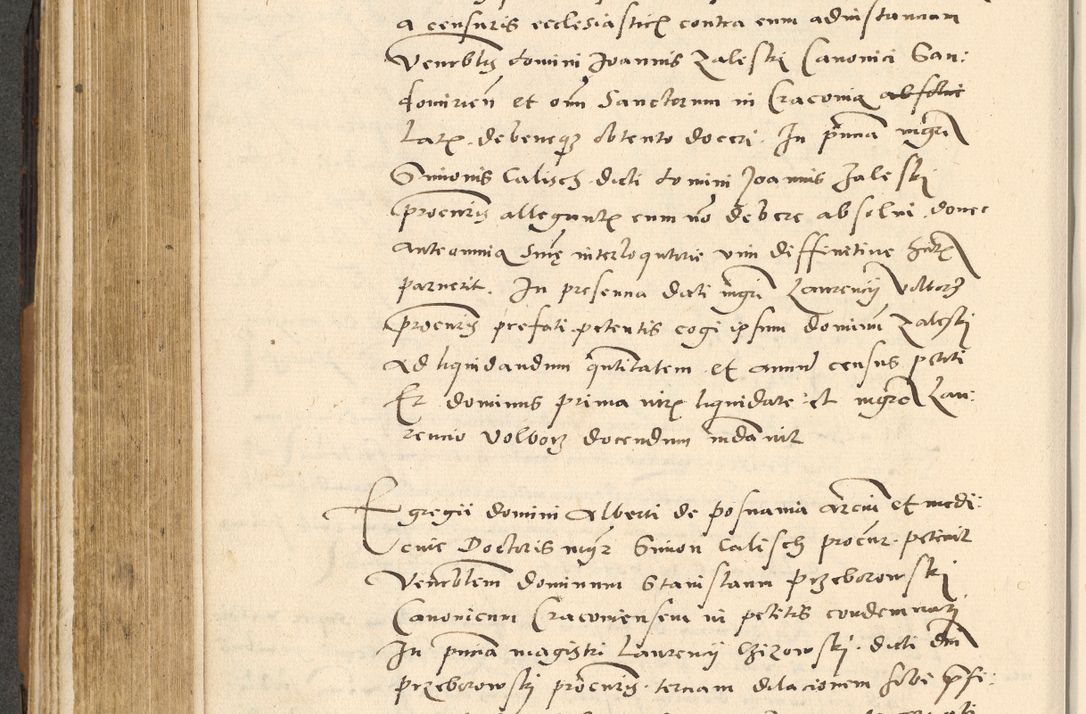 a censuris ecclesiasticis contra eum ad instantiam
Venerabilis domini Joannis Zaleski Canonici San-
domirien et om Sanctorum in Cracovia absolu
lat debeneque obtento doceri. In pntia mgri
Simonis Calisch dicti domini Joannis Zaleski
procuris allegantis eum no debere absolui donec
anteomnia sme interloqutorie vim diffinitive hntis
paruerit. In presentia dicti mgri Laurencij Volborz
procuris prefati petentis cogi ipsum dominum Zaleski
ad liquidandum qntitatem et annum census petiti
Et dominus prima liquidare et mgro Lau-
rencio Volborz docendum mdauit

Egregii domini Alberti de Posnania arcium et medi-
cine Doctoris mgr Simon Calisch procur. petiuit
Venerabilem dominum Stanislaum Przeborowski
Canonicum Cracouiensem in petitis condemnari
In pntia magistri Laurencij Chizowski dicti dni
Przeborowski procuris terciam dilacionem sibi prefi-